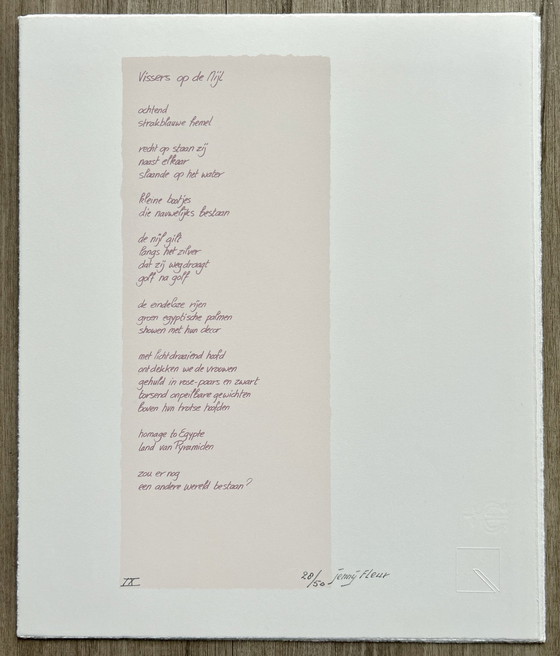 Vissers op de Nijl
ochtend
strakblauwe hemel
recht op staan zij
naast elkaar
slaande op het water
kleine bootjes
die nauwelijks bestaan
de nijl gilt
langs het zilver
dat zij wegdraagt
golf na golf
de eindeloze rijen
groen egyptische palmen
showen met hun decor
met licht draaiend hoofd
ontdekken we de vrouwen
gehuld in rose-paars en zwart
torsend onpeilbare gewichten
boven hun trotse hoofden
homage to Egypte
land van Pyramiden
zou er nog
een andere wereld bestaan?
IX
28/50 jenny Fleur